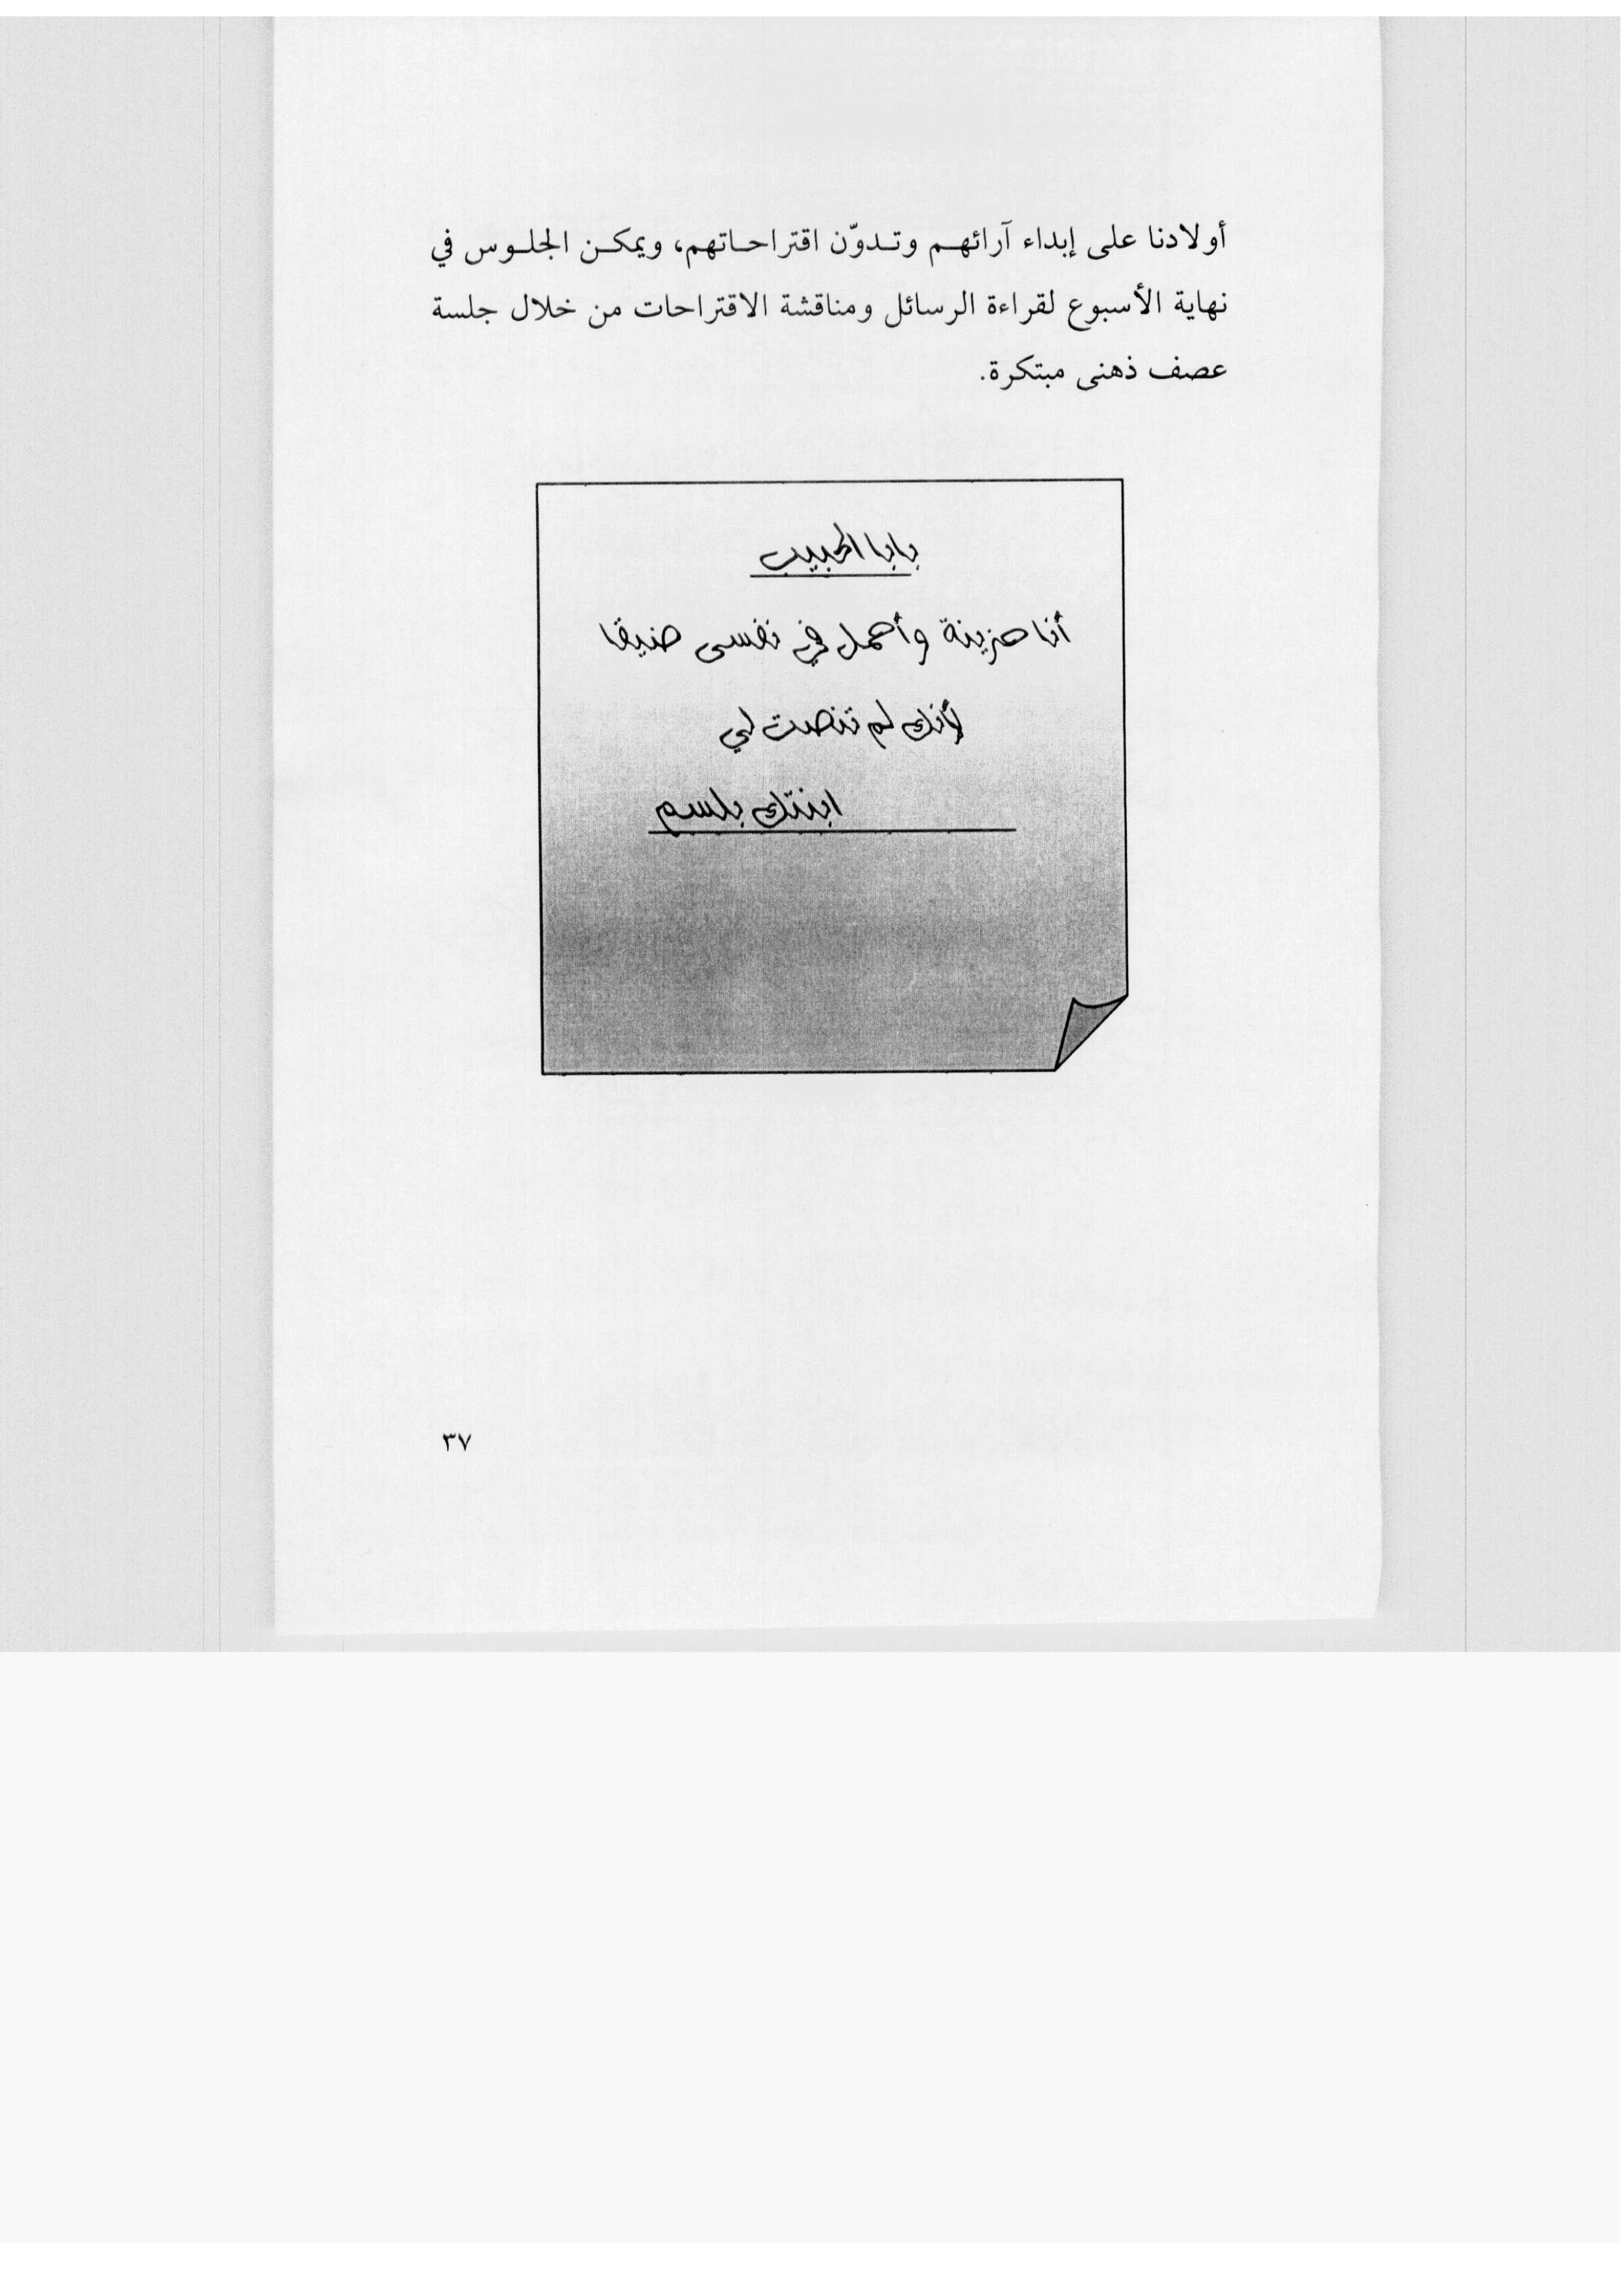 أولادنا على إبداء آرائهم وتدوّن اقتراحاتهم، ويمكن الجلوس في
نهاية الأسبوع لقراءة الرسائل ومناقشة الاقتراحات من خلال جلسة
عصف ذهنى مبتكرة.
بابا الحبيب
أنا حزينة وأحمل في نفسى ضيقا
لأنك لم تنصت لي
ابنتك بلسم
٣٧